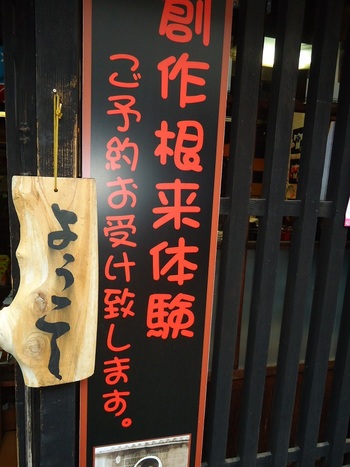 創作根来体験
ご予約お受け致します。
ようこそ